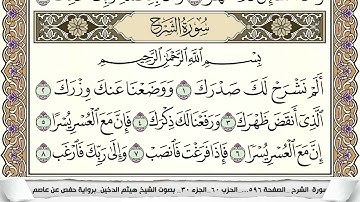 سُورَةُ الشَّرْحِ
بِسْمِ اللَّهِ الرَّحْمَٰنِ الرَّحِيمِ
أَلَمْ نَشْرَحْ لَكَ صَدْرَكَ ١ وَوَضَعْنَا عَنكَ وِزْرَكَ ٢
الَّذِي أَنقَضَ ظَهْرَكَ ٣ وَرَفَعْنَا لَكَ ذِكْرَكَ ٤ فَإِنَّ مَعَ الْعُسْرِ يُسْرًا ٥
إِنَّ مَعَ الْعُسْرِ يُسْرًا ٦ فَإِذَا فَرَغْتَ فَانصَبْ ٧ وَإِلَىٰ رَبِّكَ فَارْغَب ٨
سورة الشرح ..الصفحة ٥٩٦... الحزب ٦٠ .الجزء ٣٠ . بصوت الشيخ هيثم الدخين .برواية حفص عن عاصم